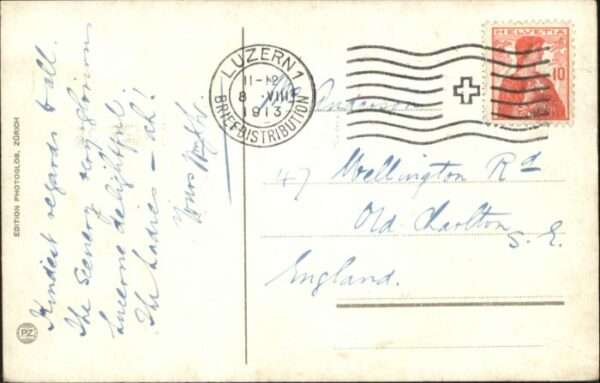 Kindest regards to all.
The Scenery very glorious
Lucerne delightful.
The Ladies - ah!
Yours
EDITION PHOTOGLOB, ZÜRICH
PZ
LUZERN 1
11-12
8 VIII
1913
BRIEFDISTRIBUTION
HELVETIA
10
Anderson
47 Wellington Rd
Old Charlton
S.E.
England.